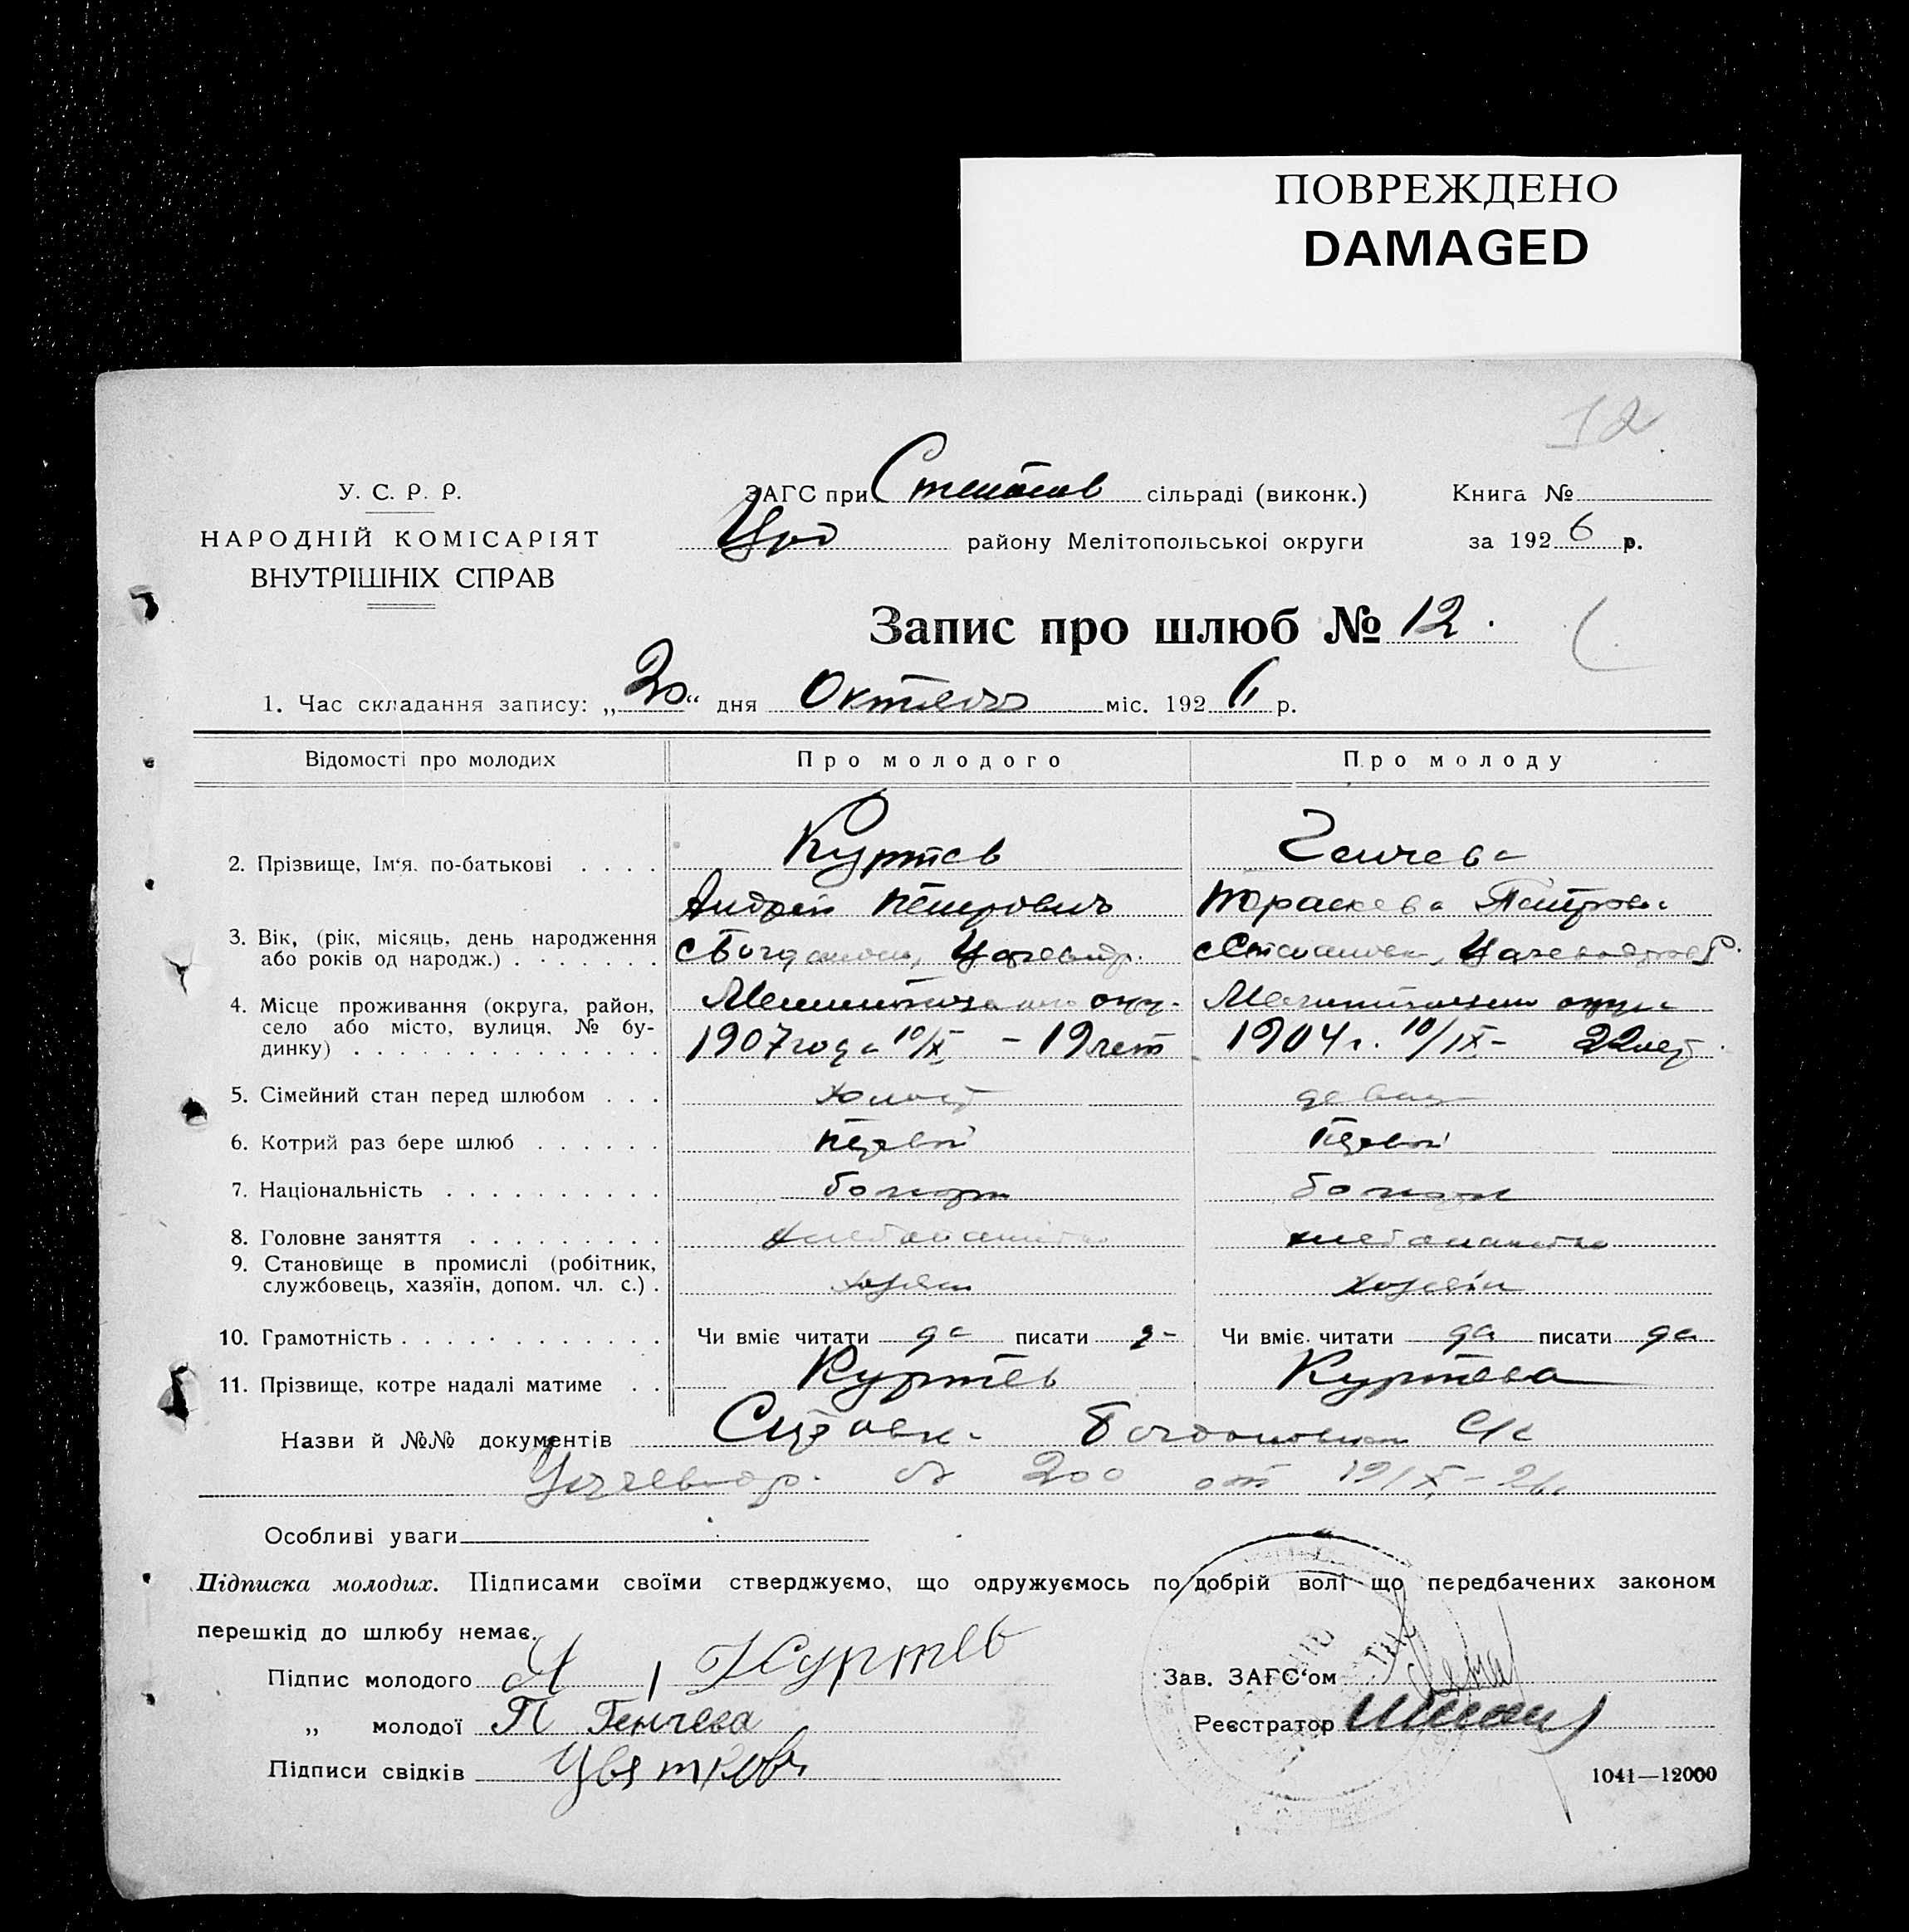 ПОВРЕЖДЕНО
DAMAGED
12
У. С. Р. Р.
НАРОДНІЙ КОМІСАРІЯТ
ВНУТРІШНІХ СПРАВ
ЗАГС при сільраді (виконк.)
району Мелітопольської округи
Книга №
за 1926 р.
Запис про шлюб № 12.
1. Час складання запису: „20“ дня Октября міс. 1926 р.
Відомості про молодих Про молодого Про молоду
2. Прізвище, Ім‘я. по-батькові . . . . Куртев Генчева
Андрей Петрович Параскева Петровн
3. Вік, (рік, місяць, день народження
або років од народж.) . . . . . . .
4. Місце проживання (округа, район,
село або місто, вулиця, № бу-
динку) . . . . . . . . . . . . . . 1907 года 10/X - 19 лет 1904 г. 10/IX - 22 лет
5. Сімейний стан перед шлюбом . . . холост девица
6. Котрий раз бере шлюб . . . . . . первый первый
7. Національність . . . . . . . . . . болгар болгар
8. Головне заняття . . . . . . . . . хлебопашество хлебопашество
9. Становище в промислі (робітник,
службовець, хазяїн, допом. чл. с.) . хозяин хозяин
10. Грамотність . . . . . . . . . . . . Чи вміє читати да писати да Чи вміє читати да писати да
11. Прізвище, котре надалі матиме . . Куртев Куртева
Назви й №№ документів Справк. Богдановская С/с
Цареводар. за 200 от 19/X - 26
Особливі уваги
Підписка молодих. Підписами своїми стверджуємо, що одружуємось по добрій волі що передбачених законом
перешкід до шлюбу немає.
Підпис молодого А Куртев
„ молодої П Генчева
Підписи свідків Цвятков
Зав. ЗАГС‘ом
Реєстратор
1041—12000